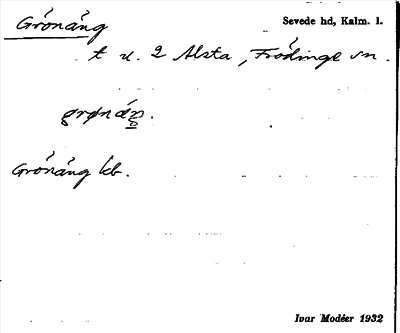 Grönäng
Sevede hd, Kalm. l.
t u. 2 Alsta, Frödinge sn.
Grönäng kb.
Ivar Modéer 1932